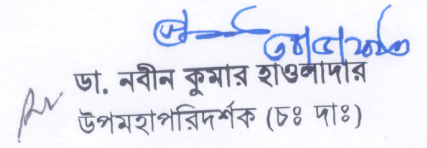 ডা. নবীন কুমার হাওলাদার
উপমহাপরিদর্শক (চঃ দাঃ)